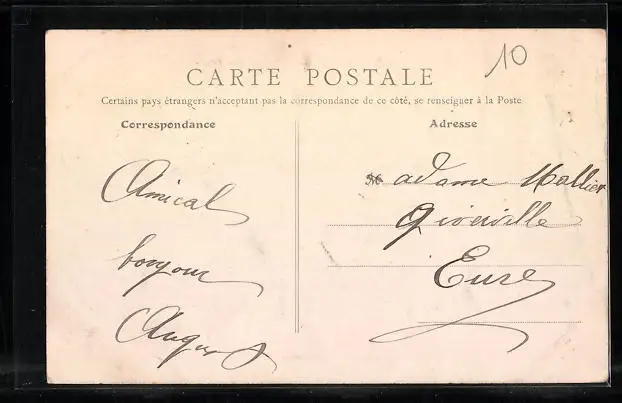 10
CARTE POSTALE
Certains pays étrangers n'acceptant pas la correspondance de ce côté, se renseigner à la Poste
Correspondance
Adresse
Amical
bonjour
Madame Hallier
Giverville
Eure